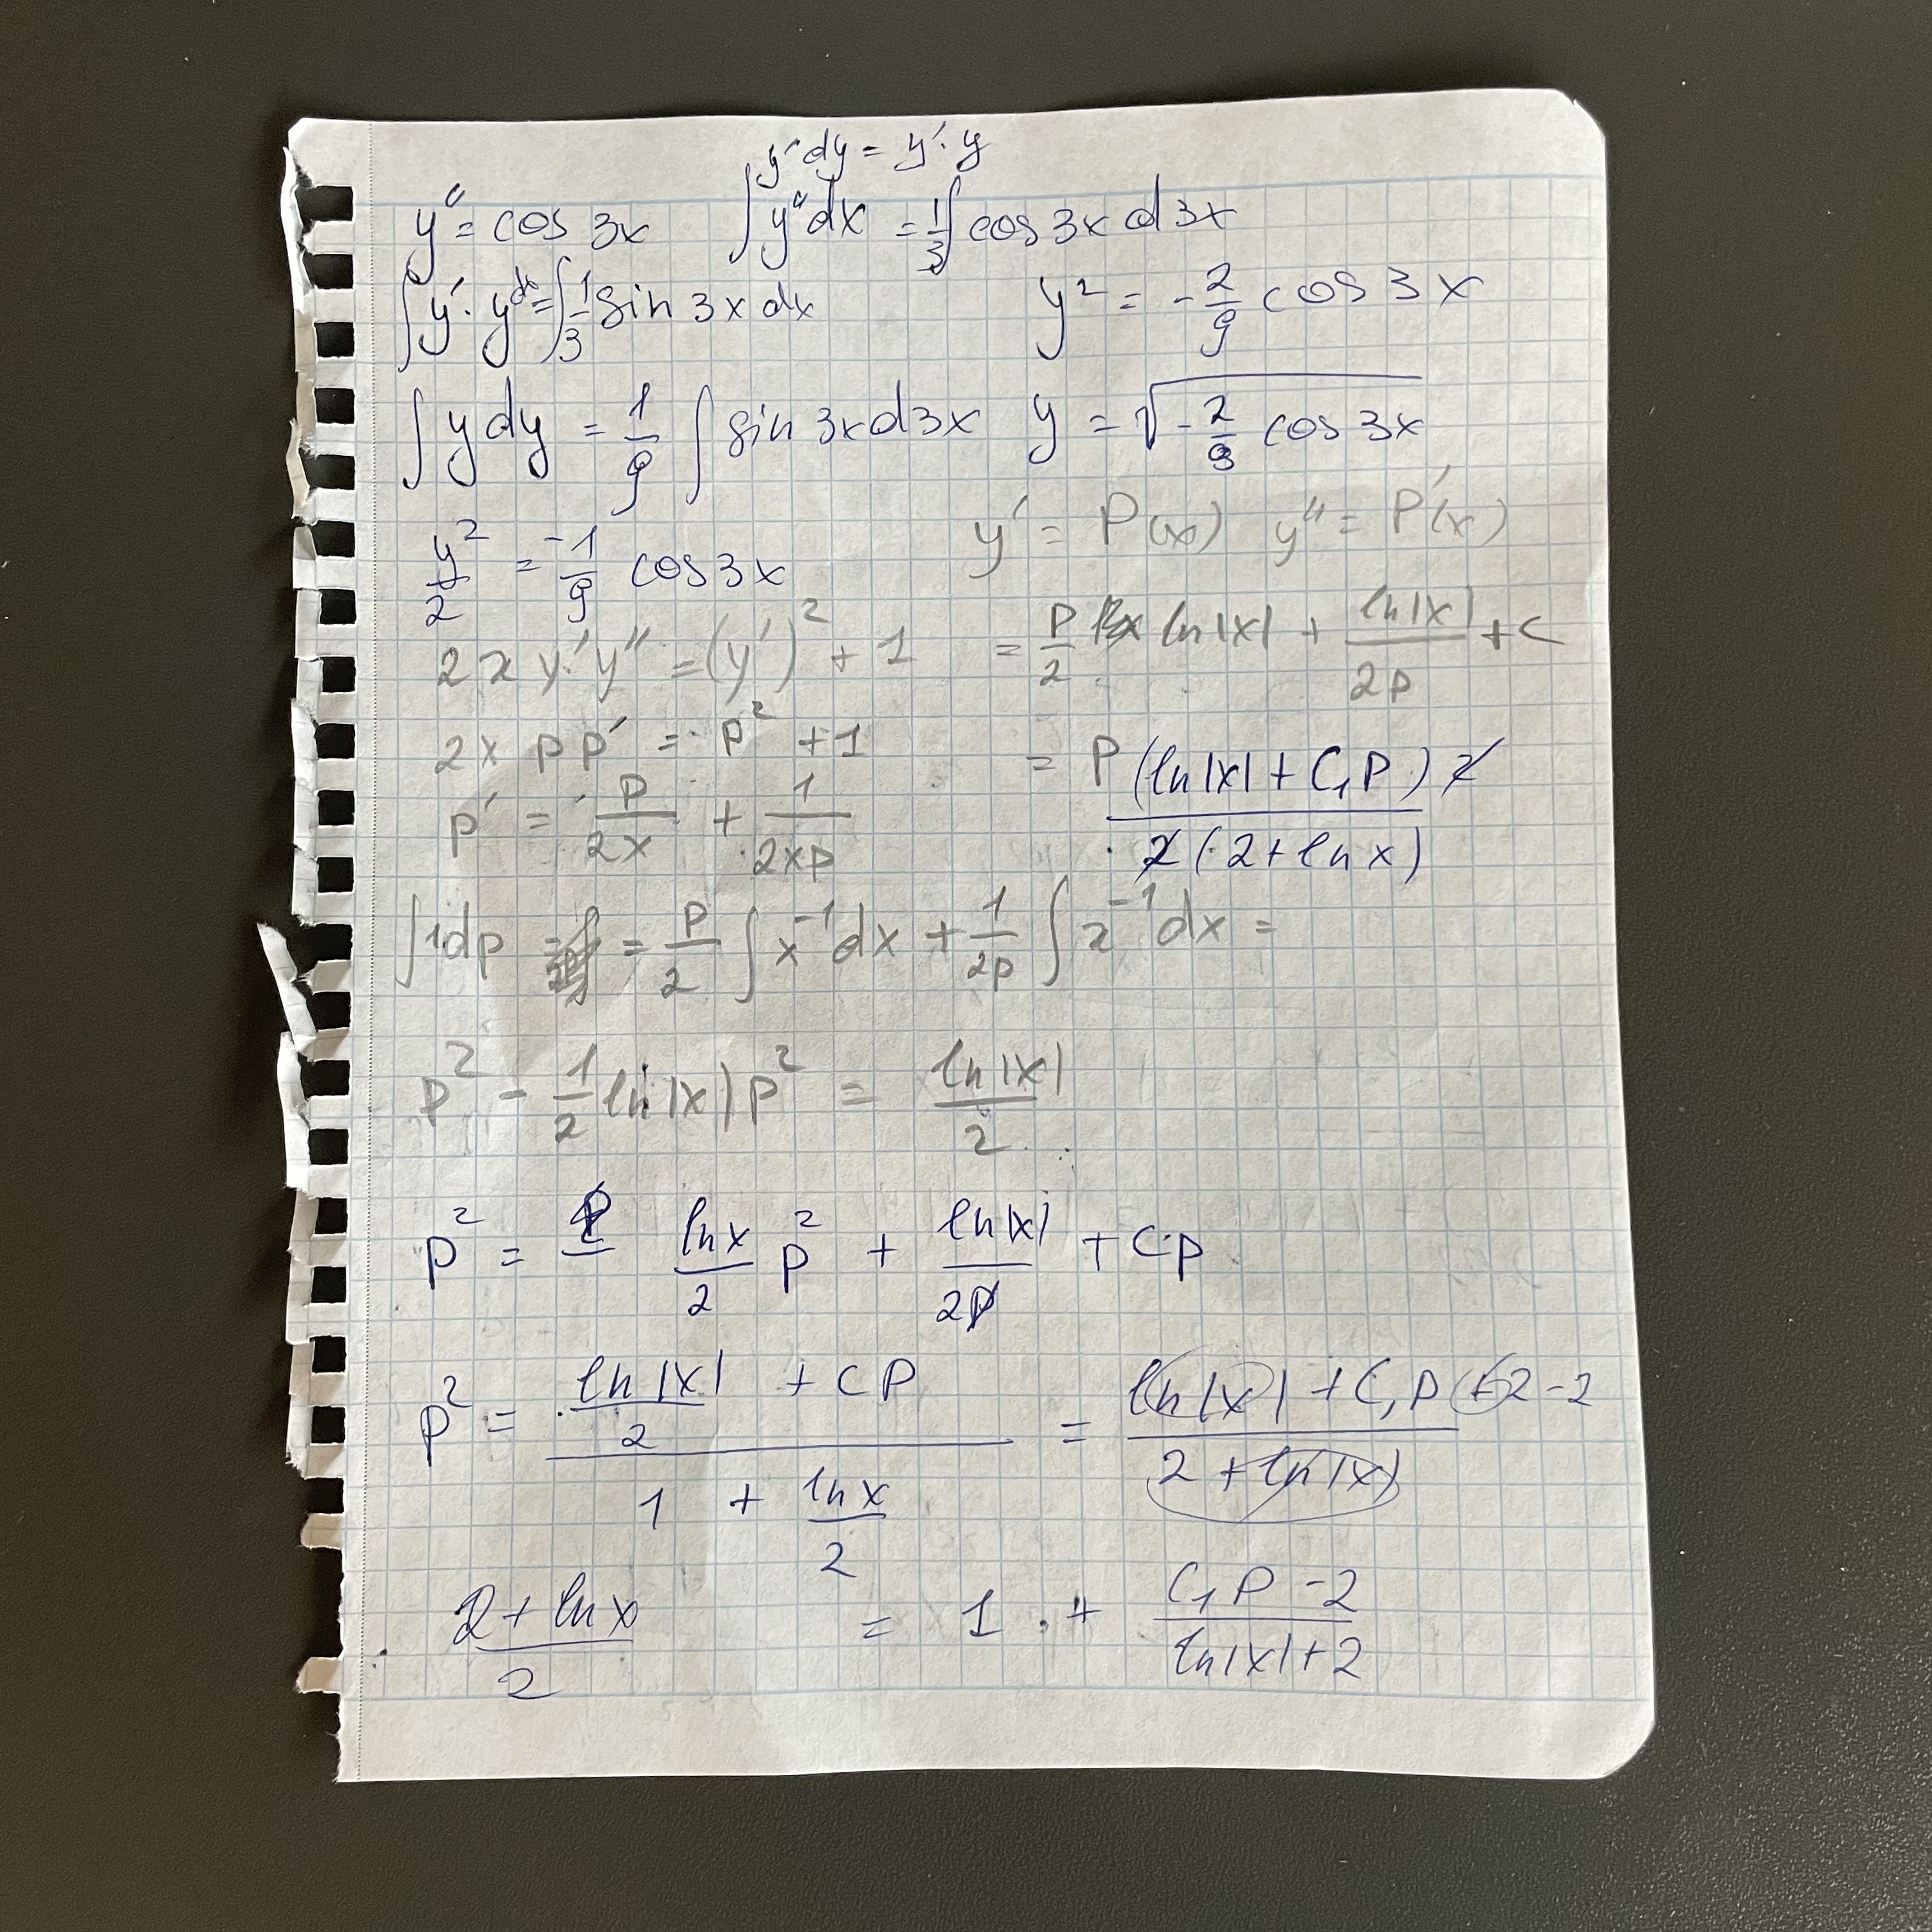 y' dy = y'· y
y'' = cos 3x ∫ y'' dx = 1/3 ∫ cos 3x d3x
∫ y' · y dx = ∫ 1/3 sin 3x dx y² = - 2/9 cos 3x
∫ y dy = 1/9 ∫ sin 3x d3x y = √(- 2/9 cos 3x)
y' = P(x) y'' = P'(x)
y²/2 = -1/9 cos 3x
2x y' y'' = (y')² + 1 = P/2 ln|x| + ln|x|/2p + C
2x p p' = p² + 1 = P (ln|x| + C₁P) 2 / 2 (2 + ln x)
p' = P/2x + 1/2xp
∫ 1dp = P/2 ∫ x⁻¹ dx + 1/2p ∫ x⁻¹ dx =
P² - 1/2 ln|x| P² = ln|x|/2
P² = ln x/2 P² + ln|x|/2p + Cp
P² = (ln|x|/2 + CP) / (1 + ln x/2) = (ln|x| + C₁P + 2 - 2) / (2 + ln|x|)
2 + ln x / 2 = 1 + (C₁P - 2) / (ln|x| + 2)